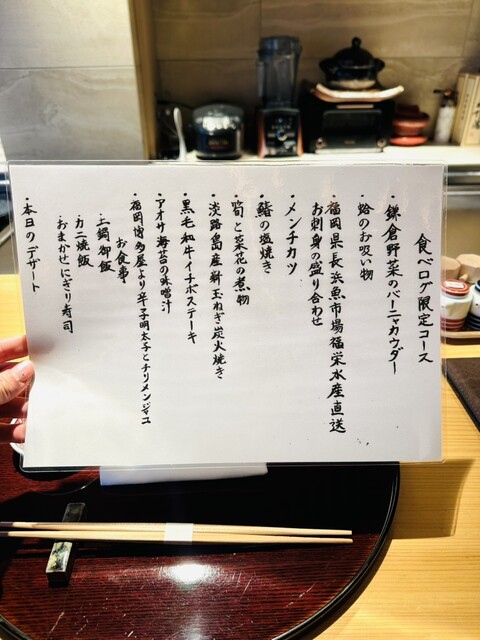 食べログ限定コース
・鎌倉野菜のバーニャカウダー
・蛤のお吸い物
・福岡県長浜魚市場福栄水産直送
お刺身の盛り合わせ
・メンチカツ
・鰆の塩焼き
・筍と菜花の煮物
・淡路島産新玉ねぎ炭火焼き
・黒毛和牛イチボステーキ
・アオサ海苔の味噌汁
・福岡博多屋より辛子明太子とチリメンジャコ
お食事
・土鍋御飯
・カニ焼飯
・おまかせにぎり寿司
・本日のデザート